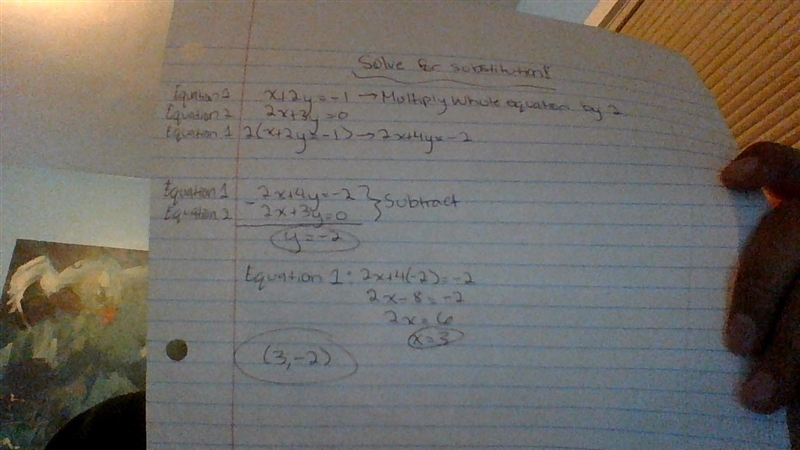 Solve for substitution!
Equation 1 x+2y=-1 → Multiply whole equation by 2
Equation 2 2x+3y=0
Equation 1 2(x+2y=-1) → 2x+4y=-2
Equation 1 2x+4y=-2 } Subtract
Equation 2 - 2x+3y=0
y=-2
Equation 1: 2x+4(-2)=-2
2x-8=-2
2x=6
x=3
(3,-2)